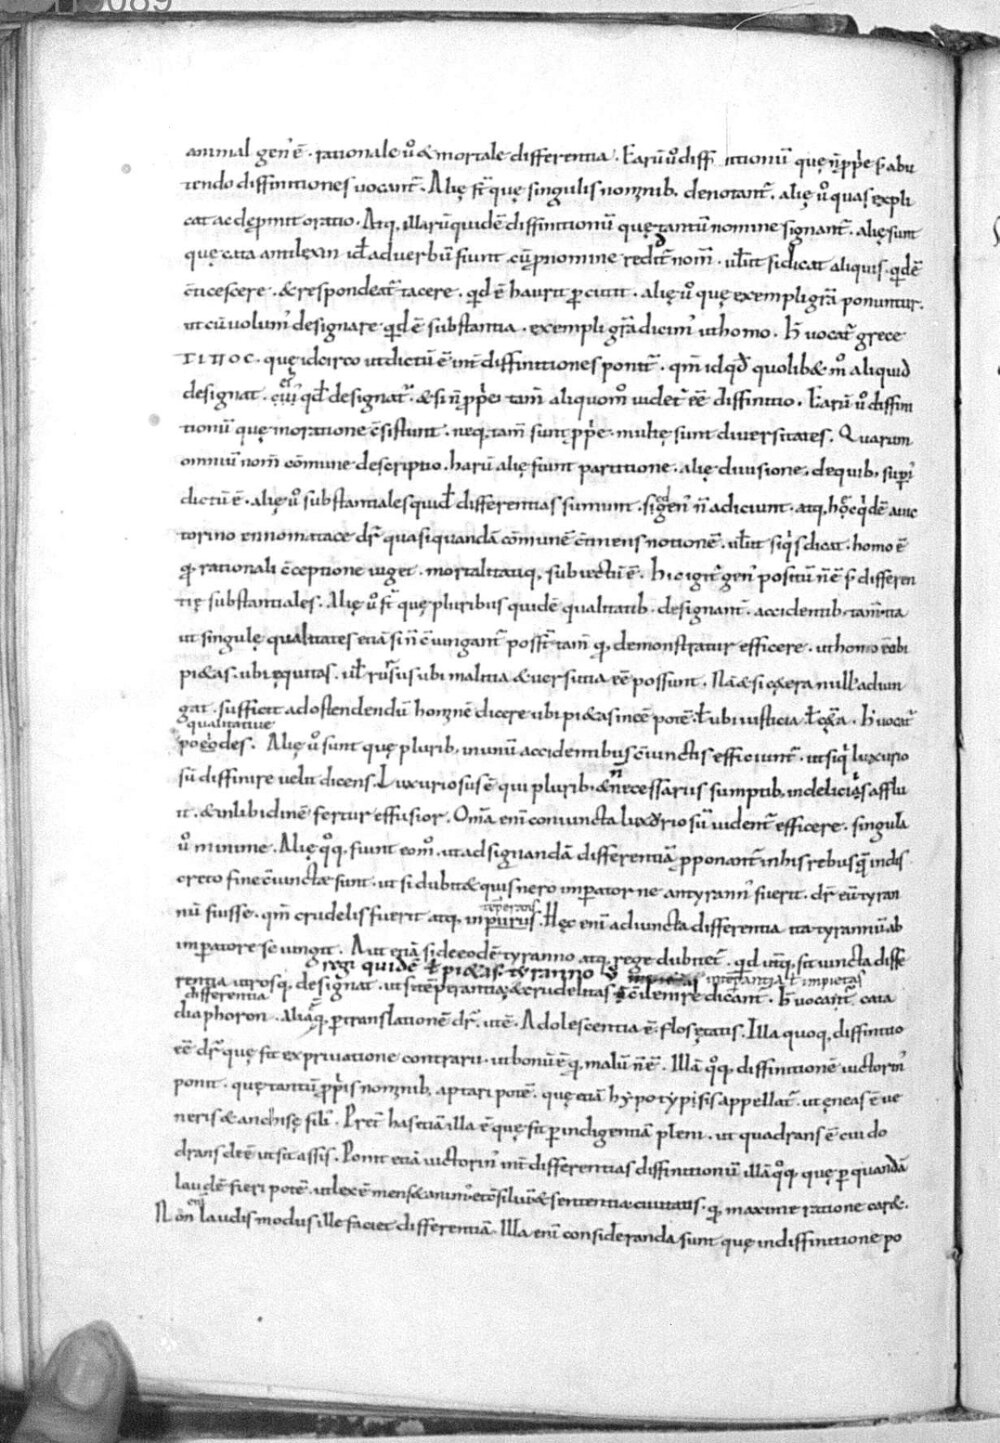 animal gen' ē · rationale ů & mortale differentia . Earū ů diff itionū quę n̄ pp̄e s; abu
tendo diffinitiones uocant̄ . Alię st̄ quę singulis nominib; denotant̄ . alię ů quas expli
cat ac depmit oratio . Atq; illarū quidē diffinitionū quę tantū nomine signant̄ . alię sunt
quę cata antilexin id ad uerbū fiunt . cū pnomine reddit̄ nom̄ . ut si dicat aliquis . qd ē
c̄ticescere . & respondeat̄ tacere . qd ē haurit pcutit . alię ů quę exempli grā ponuntur .
ut cū volum' designare qd ē substantia . exempli grā dicim' ut homo . h̄ uocat̄ grece
ΤΙΠΟC . quę idcirco ut dictū ē int̄ diffinitiones ponit̄ . qm̄ id qd quolib& m̊ aliquid
designat . ei' qd designat̄ . & si n̄ pp̄e tam̄ aliquom̊ uidet̄ eē diffinitio . Earū ů diffini
tionū quę inoratione c̄sistunt . neq; tam̄ sunt pp̄e . multę sunt diuersitates . Quarum
omniū nom̄ cōmune descriptio . harū alię fiunt partitione . alię diuisione . de quib; sup̄i'
dictū ē . alię ů substantiales quid differentias sumunt . s; ad gen' n̄ adiciunt . atq; hoc qdē a uic
torino ennomatace dr̄ quasi quandā cōmunē c̄tinens notionē . ut si q's dicat . homo ē
q; rationali c̄ceptione uiget . mortalitatiq; subiectū ē . hic igit̄ gen' positū n̄ ē s; differen
tię substantiales . Alię ů st̄ quę pluribus quidē qualitatib; designant̄ . accidentib; tam̄ . ita
ut singulę qualitates etiā si n̄ c̄iungant̄ poss̄t tam̄ q; demonstratur efficere . ut homo ē ubi
pi&as . ubi ęquitas . ut rur̄sus ubi malitia & uersutia eē possunt . Nā & si c&era null' adiun
gat . sufficit ad ostendendū hominē dicere ubi pi&as inēe potē . t ubi iusticia t c&ā . h̄ uocat̄
qualitatiue
poeodes . Alię ů sunt quę plurib; in unū accidentibus c̄iunctis efficiunt̄ . ut siq' luxurio
sū diffinire uelit dicens . Luxuriosus ē qui plurib; & n̄ necessariis sumptib; in delicias afflu
it . & in libidinē fertur effusior . Om̄a eni cōniuncta luxoriosū uident̄ efficere . singula
ů minime . Alię qq; fiunt eom̊ . ut ad signandā differentiā pponant̄ in his rebus quę indis
creto fine c̄iunctae sunt . ut si dubit& quis nero imperator ne an tyrann' fuerit . dr̄ eū tyran
tēperans
nū fuisse . qm̄ crudelis fuerit atq; inpurus . Hęc eni adiuncta differentia ita tyrannū ab
imperatore seiungit . Aut etiā si de eodē tyranno atq; rege dubitet̄ . qd utiq; sit iuncta diffe
regi quidē t pi&as tyranno ů intēperantia t impietas
rentia utrosq; designat . ut si tēperantia & crudelitas c̄ilenire dicant . h̄ uocant̄ cata
differentia
diaphoron . Alia qq; p translationē dr̄ . ut ē . Adolescentia ē flos ętatis . Illa quoq; diffinitio
eē dr̄ quę fit ex priuatione contrarii . ut bonū ē q; malū n̄ ē . Illā qq; diffinitionē uictorin'
ponit . quę tantū pp̄iis nominib; aptari potē . quę etiā hypotypisis appellat̄ . ut ęneas ē ue
neris & anchisę fili' . Pret̄ has etiā illa ē quę fit p indigentiā pleni . ut quadrans ē cui do
drans deē ut sit assis . Ponit etiā uictorin' int̄ differentias diffinitionū illā qq; quę p quandā
laudē fieri potē . ut lex ē mens & anim' & c̄siliū & sententia ciuitatis . q; maxime ratione car& .
Non laudis modus ille faciet differentiā . Illa eni consideranda sunt quę in diffinitione po